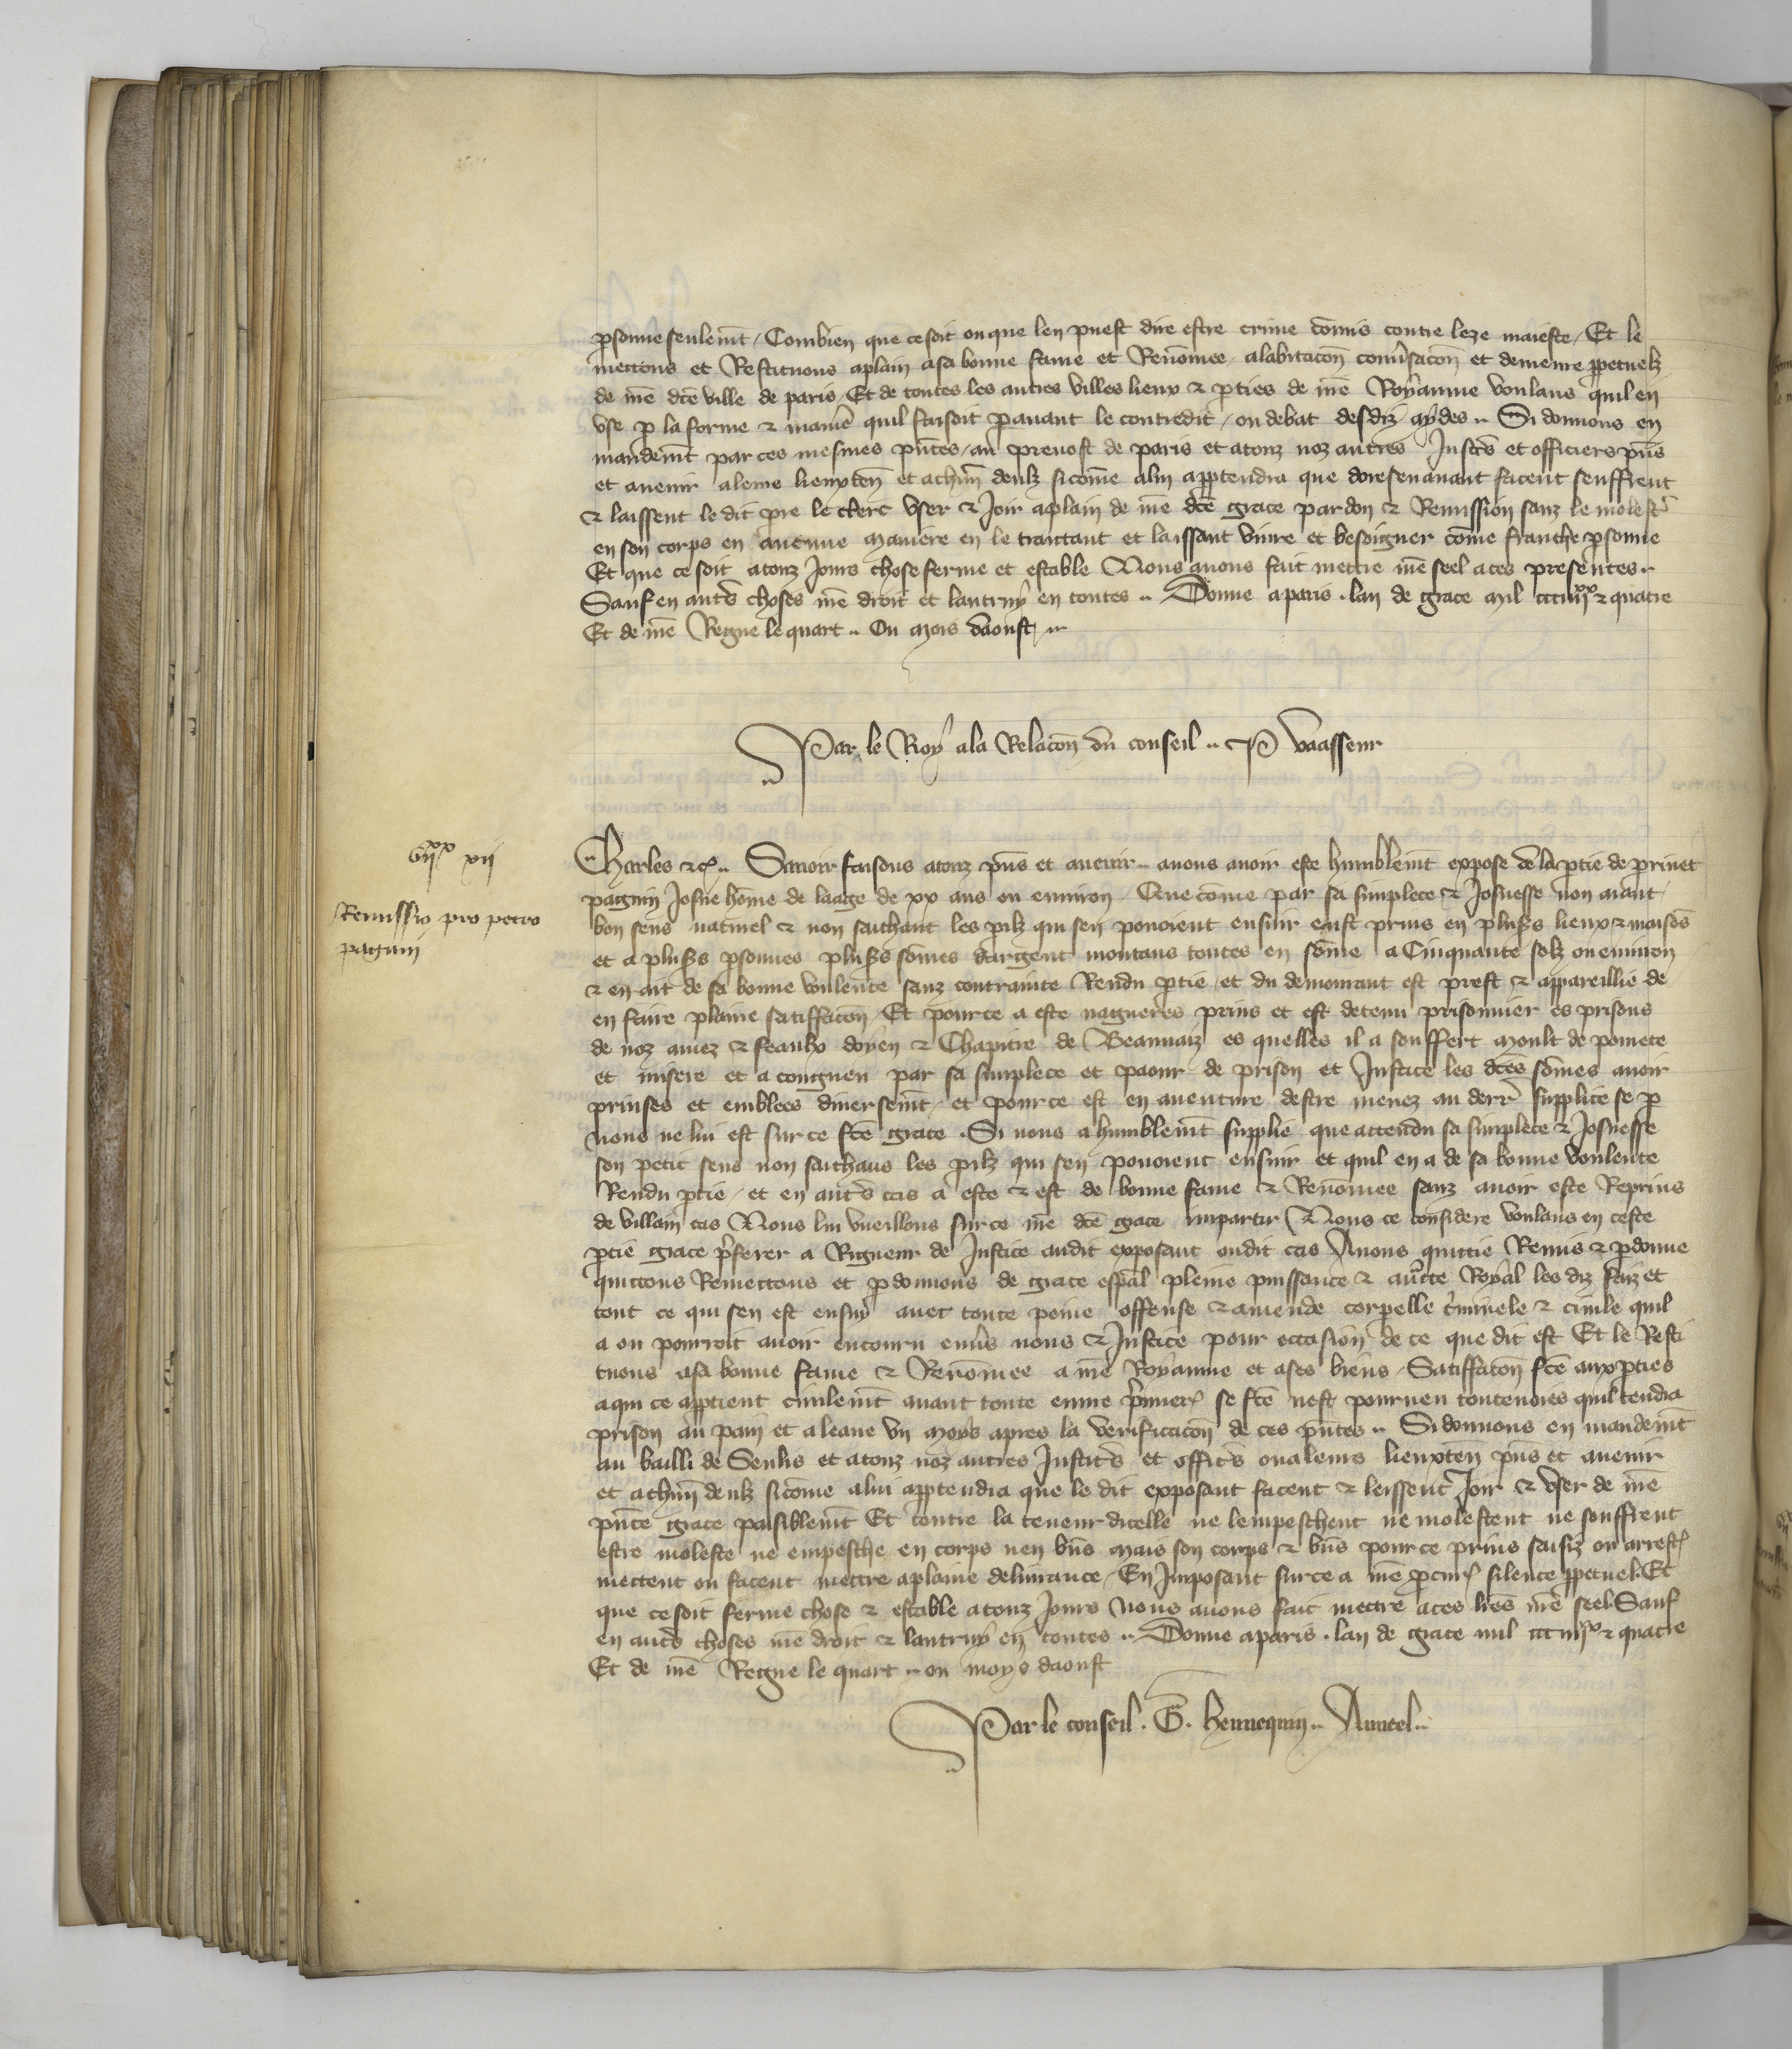 psonne seulemt / Combien que ce soit ou que len puest dire estre crime cōmis contre leze maieste / Et le
mettons et Restituons aplain asa bonne fame et Renōmee / alabitacōn conūsacōn et demeure ppetuelz
de nrē dcē ville de paris / Et de toutes les autres villes lieux & pties de nrē Royaume voulans quil en
vse p la forme & maniē quil faisoit pauant le contredit / ou debat desdiz aydes .. Si donnons en
mandemt par ces mesmes pntes / au prevost de paris et atouz noz autres Justcs et officiers pns
et auenir a leurs lieuxten et achūn deulz sicōme alui apptendra que doresenauant facent seuffrent
& laissent le dit pre le clerc vser & Joir aplain de nrē dcē grace pardon & Remission sanz le molestr
en son corps en aucune maniere en le traittant et laissant viure et besoigner cōme franche psonne
Et que ce soit atouz Jours chose ferme et estable Nous auons fait mettre nrē seel aces presentes ..
Sauf en autrs choses nrē droit et lautruy en toutes .. Donne aparis . lan de grace mil ccciiiixx & quatre
Et de nrē Regne le quart .. Ou mois daoust ..
Par le Roy ala Relacōn du conseil .. P vaasseur
viixx xij
Remissio pro petro
paguin
Charles &c .. Sauoir faisons atouz pns et auenir .. anous auoir este humblemt expose de la ptie de prinet
paguin Josne hōme de laage de xx ans ou enuiron / Que cōme par sa simplece & Josnesse non aiant
bon sens naturel & non saichant les pilz qui sen pouoient ensuir eust prins en plusrs lieux & maisōs
et a plusrs psonnes plusrs sōmes dargent montans toutes en sōme a Cinquante solz ou enuiron
& en ait de sa bonne voulente sanz contrainte Rendu ptie / et du demourant est prest & appareillie de
en faire plaine satiffacōn Et pour ce a este nagueres prins et est detenu prisonnier es prisons
de noz amez & feaulx doyen & Chapitre de Beauuaiz es quelles il a souffert moult de pourete
et misere et a congneu par sa simplece et paour de prison et Justice les dces sōmes auoir
prinses et emblees diuersemt / et pour ce est en auenture destre menez au derr supplice se p
nous ne lui est sur ce fcē grace . Si nous a humblemt supplie que attendu sa simplece & Josnesse
son petit sens non saichans les pilz qui sen pouoient ensuir et quil en a de sa bonne voulente
Rendu ptie / et en autrs cas a este & est de bonne fame & Renōmee sanz auoir este Reprins
de villain cas Nous lui vueillons sur ce nrē dcē grace impartir Nous ce considere voulans en ceste
ptie grace pferer a Rigueur de Justice audit exposant oudit cas Auons quittie Remis & pdonne
quittons Remettons et pdonnons de grace espāl pleine puissance & auctte Royal les diz faiz et
tout ce qui sen est ensuy auec toute peine offense & amende corpelle criminele & ciuile quil
a ou pourroit auoir encouru enuers nous & Justice pour occasion de ce que dit est Et le Resti
tuons asa bonne fame & Renōmee a nrē Royaume et ases biens / Satiffacōn fcē aux pties
aqui ce apptient ciuilemt auant toute euure pmier se fcē nest pourueu toutenoies quil tendra
prison au pain et a leaue vn moys apres la verificacōn de ces pntes .. Si donnons en mandemt
au bailli de Senlis et atouz noz autres Justicrs et officrs oualeurs lieuxten pns et auenir
et achūn deulz sicōme alui apptendra que le dit exposant facent & leissent Joir & vser de nrē
pnte grace paisiblemt Et contre la teneur dicelle ne lempeschent ne molestent ne seuffrent
estre moleste ne empesche en corps nen bns mais son corps & bns pour ce prins saisiz ou arrest
mettent ou facent mettre aplaine deliurance / En Jmposant sur ce a nrē pcur silence ppetuel . Et
que ce soit ferme chose & estable atouz Jours Nous auons fait mettre aces lres nrē seel . Sauf
en autrs choses nrē droit & lautruy en toutes .. Donne aparis . lan de grace mil ccc iiiixx & quatre
Et de nrē Regne le quart .. ou moys daoust
Par le conseil . G . hennequin .. Auncel ..